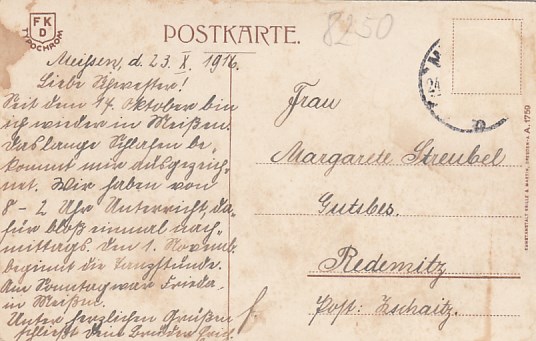 FK
D
TYPOCHROM
POSTKARTE.
8250
Meißen, d. 23. X. 1916.
Liebe Schwester!
Seit dem 14. Oktober bin
ich wieder in Meißen.
Das lange Schlafen be-
kommt mir ausgezeich-
net. Wir haben von
8-2 Uhr Unterricht, da-
für bloß einmal nach-
mittags. Den 1. Novemb.
beginnt die Tanzstunde.
Am Sonntag war Frieda
in Meißen.
Unter herzlichen Grüßen
schließt dein Bruder
Frau
Margarete Streubel
Gutsbes.
Redemitz
Post: Zschaitz.
A. 1759